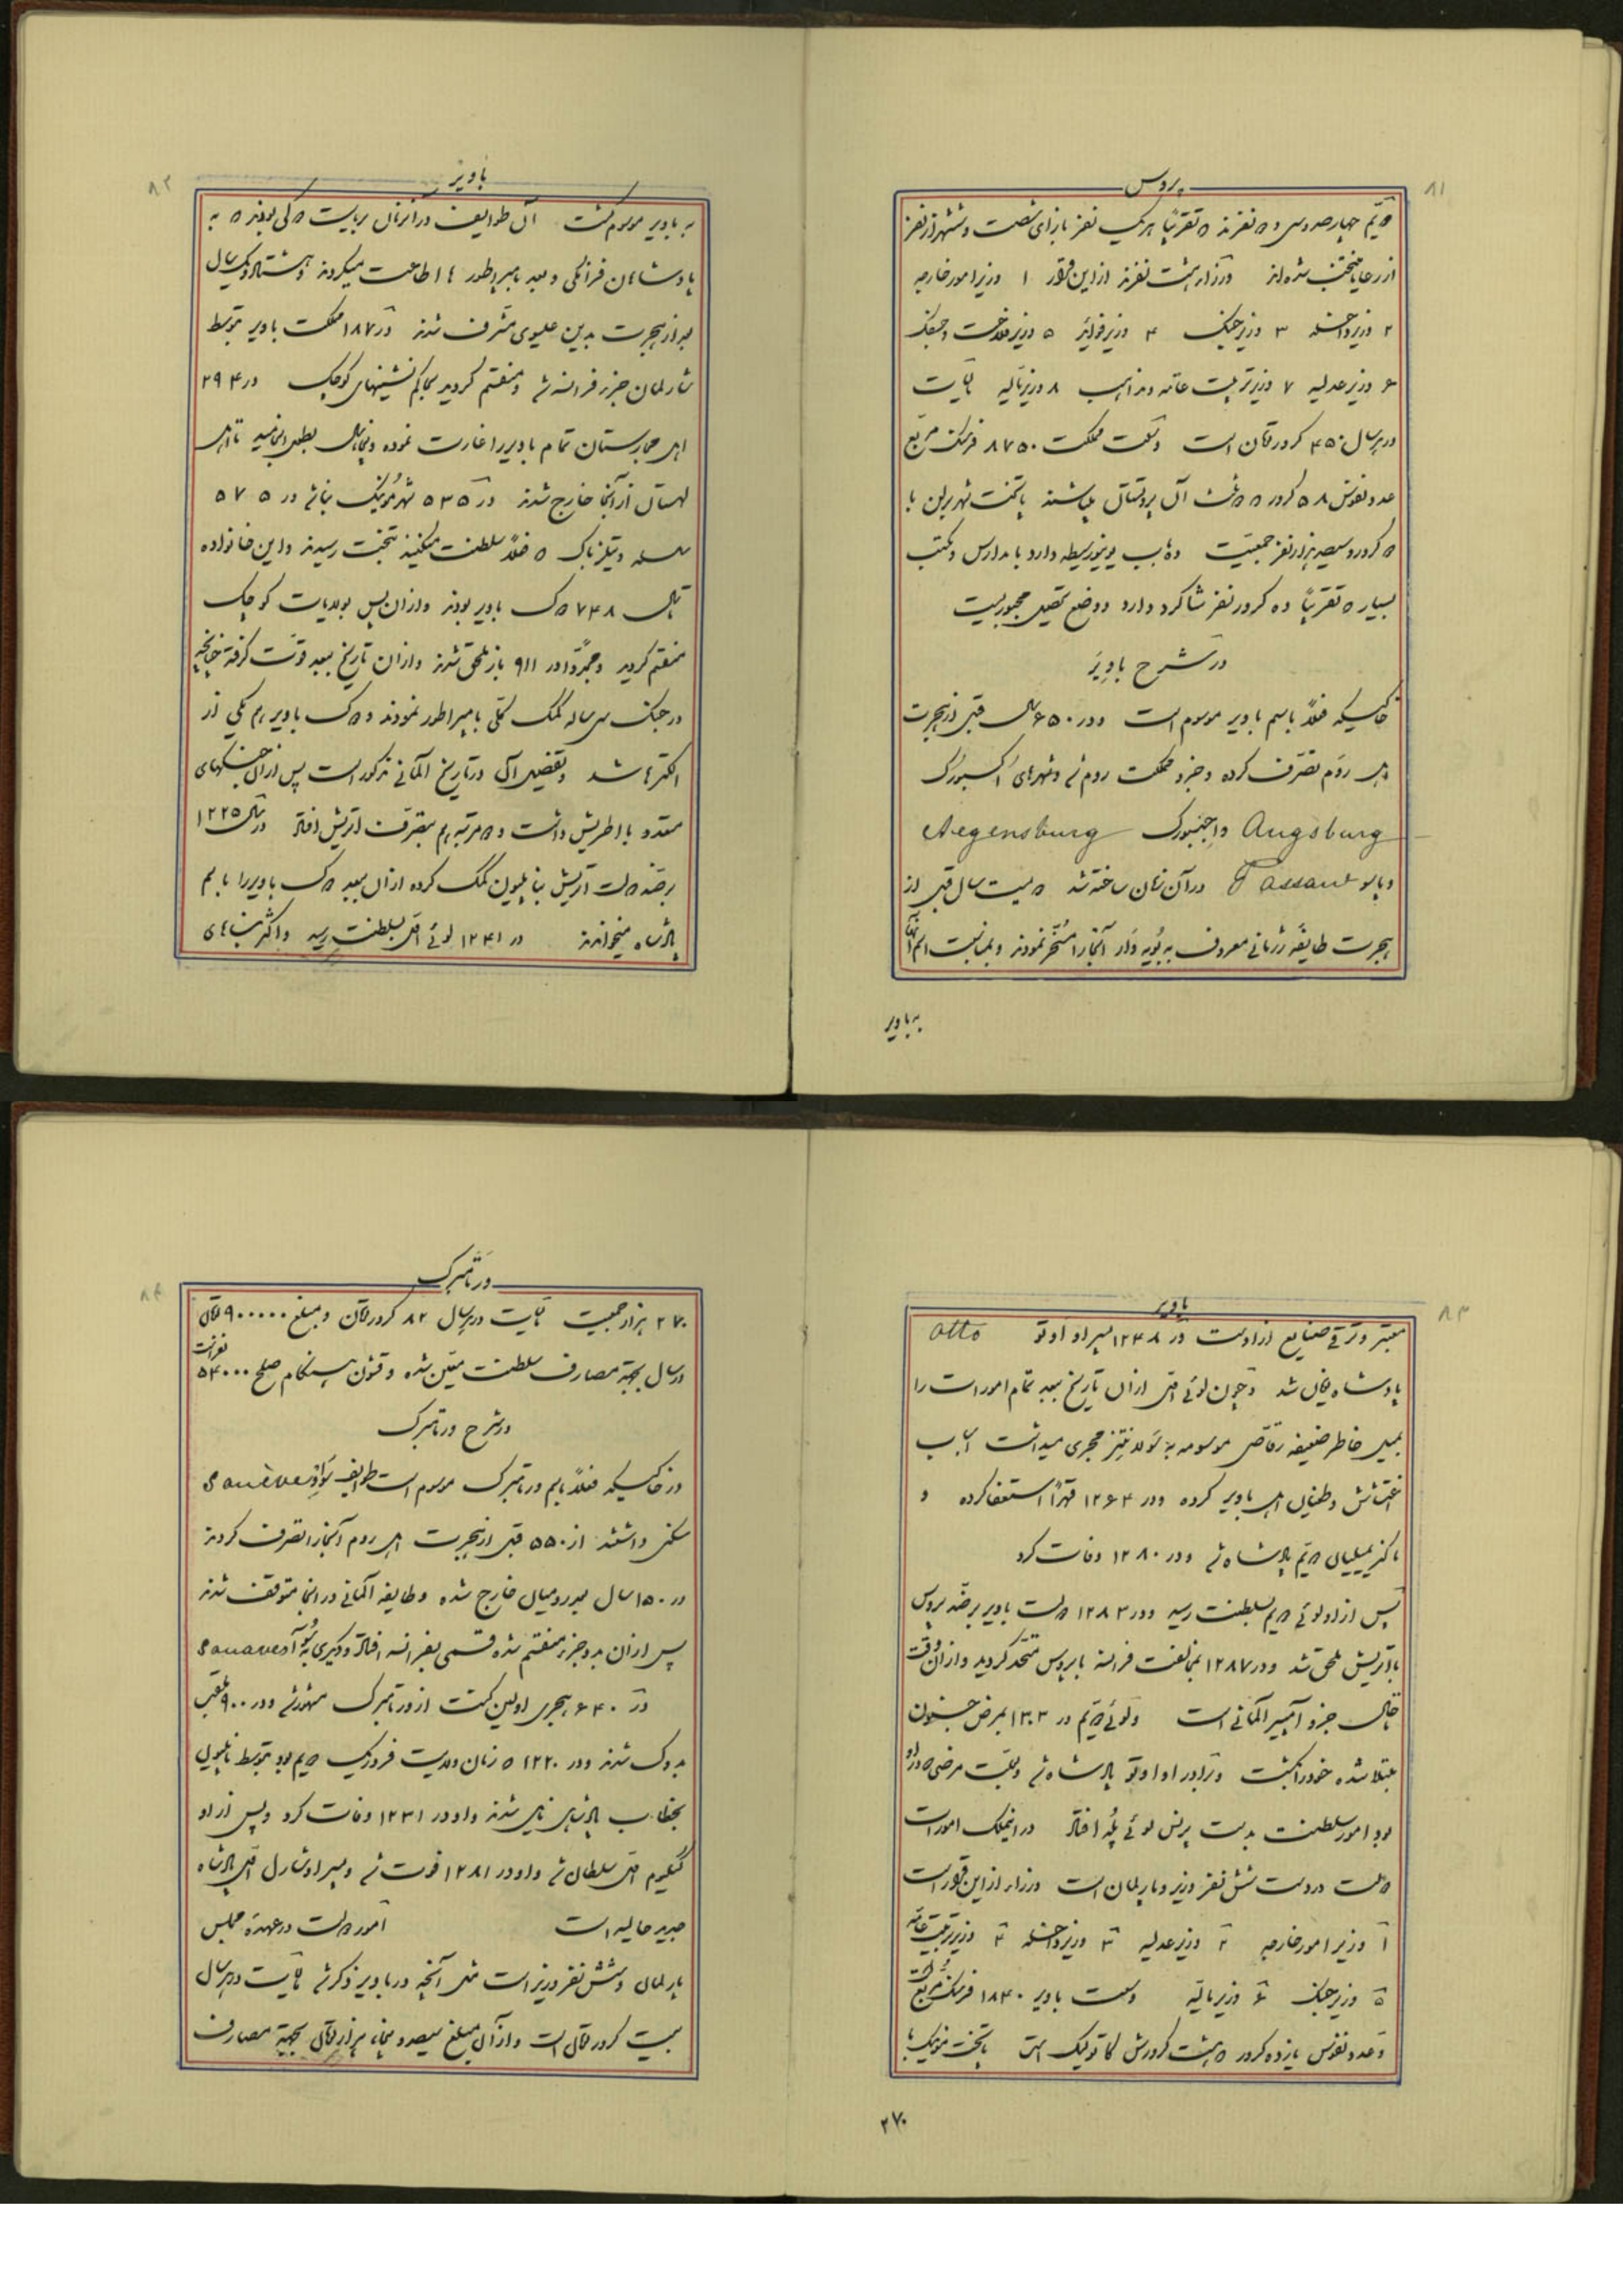 پروس
۸۱
دویم چهارصد و سی و دو نفرند که تقریباً هر یک نفر بازای شصت و شش هزار نفر
از رعایا منتخب شده‌اند وزراء هشت نفرند از این قرار ۱ وزیر امور خارجه
۲ وزیر داخله ۳ وزیر جنگ ۴ وزیر فوائد ۵ وزیر فلاحت و جنگل
۶ وزیر عدلیه ۷ وزیر تربیت عامه و مذاهب ۸ وزیر مالیه مالیات
در هر سال ۴۵۰ کرور تومان است وسعت مملکت ۸۷۵۰ فرسنگ مربع
عدد نفوس ۵۸ کرور که دو ثلث آن پروتستان میباشند پایتخت شهر برلن با
دو کرور و سیصد هزار نفر جمعیت ده باب یونیورسیطه دارد با مدارس و مکتب
بسیار که تقریباً ده کرور نفر شاگرد دارد و وضع تحصیل مجبوریست
در شرح باویر
خاکیکه فعلاً باسم باویر موسوم است در ۶۵۰ سال قبل از هجرت
اهل روم تصرف کرده و جزو مملکت روم شد و شهرهای اکسبورک
Augsburg و اجنسبورک Aegensburg
و پاسو Passau در آن زمان ساخته شد دویست سال قبل از
هجرت طایفه ژرمانی معروف به بویه وار آنجا را مسخر نمودند و بمناسبت اسم آنها
به باویر
باویر
۸۲
به باویر موسوم گشت آن طوایف در آنزمان بریاست دوکی بودند که به
پادشاهان فرانکی و بعد بامپراطور ها اطاعت میکردند و هشتاد و یک سال
بعد از هجرت بدین عیسوی مشرف شدند در ۱۸۷ مملکت باویر توسط
شارلمان جزو فرانسه شد و منقسم گردید بحاکم نشینهای کوچک در ۲۹۴
اهل مجارستان تمام باویر را غارت نموده و پنجاه سال بطول انجامید تا اهل
لهستان از آنجا خارج شدند در ۵۳۵ شهر مونیک بنا شد در ۵۷۵
سلسله ویتلزباک که فعلاً سلطنت میکنند بتخت رسیدند و این خانواده
تا سال ۷۴۸ دوک باویر بودند و از آن پس بولایات کوچک
منقسم گردید و مجدداً در ۹۱۱ باز ملحق شدند و از آن تاریخ ببعد قوت گرفته چنانچه
در جنگ سی ساله کمک کلی بامپراطور نمودند و دوک باویر هم یکی از
الکترها شد و تفصیل آن در تاریخ آلمانی مذکور است پس از آن جنگهای
متعدد با اطریش داشت و دو مرتبه هم بتصرف اتریش افتاد در سال ۱۲۲۵
برضد دولت اتریش بناپلیون کمک کرده از آن ببعد دوک باویر را باسم
پادشاه میخواندند در ۱۲۴۱ لوئی اول بسلطنت رسید و اکثر بناهای
باویر
۸۳
معتبر و ترقی صنایع از اوست در ۱۲۴۸ پسر او اوتو Otto
پادشاه یونان شد و چون لوئی اول از آن تاریخ ببعد تمام امورات را
بمیل خاطر ضعیفه رقاص موسومه به لولد نتز مجری میداشت اسباب
اغتشاش و طغیان اهل باویر کرده در ۱۲۶۴ قهراً استعفا کرده و
ماکزیمیلیان دویم پادشاه شد و در ۱۲۸۰ وفات کرد
پس از او لوئی دویم بسلطنت رسید و در ۱۲۸۳ دولت باویر برضد پروس
باتریش ملحق شد و در ۱۲۸۷ بمخالفت فرانسه با پروس متحد گردید و از آن وقت
تا حال جزو آمپیر آلمانی است و لوئی دویم در ۱۳۰۳ بمرض جنون
مبتلا شده خود را کشت و برادر او اوتو پادشاه شد و بعلت مرضی که در او
بود امور سلطنت بدست پرنس لوئی پلد افتاد در اینملک امورات
دولت در دست شش نفر وزیر و پارلمان است وزراء از این قرار است
۱ وزیر امور خارجه ۲ وزیر عدلیه ۳ وزیر داخله ۴ وزیر تربیت عامه
۵ وزیر جنگ ۶ وزیر مالیه وسعت باویر ۱۸۴۰ فرسنگ مربع است
و عدد نفوس یازده کرور که هشت کرورش کاتولیک است پایتخت مونیک با
۲۷۰
ورتامبرک
۸۴
۲۷۰ هزار جمعیت مالیات در هر سال ۸۲ کرور تومان و مبلغ ۹۰۰۰۰۰ تومان
در سال بجهة مصارف سلطنت معین شده و قشون بهنگام صلح ۵۴۰۰۰ نفر است
در شرح ورتامبرک
در خاکیکه فعلاً باسم ورتامبرک موسوم است طوایف سواو Souève
سکنی داشتند از ۵۵۰ قبل از هجرت اهل روم آنجا را تصرف کردند
در ۱۵۰ سال بعد رومیان خارج شده و طایفه آلمانی در اینجا متوقف شدند
پس از آن بدو جزء منقسم شده قسمی بفرانسه افتاد و دیگری به سوآو Souaves
در ۶۴۰ هجری اولین کنت از ورتامبرک مشهور شد و در ۹۰۰ ملقب
بدوک شدند و در ۱۲۲۰ که زمان ولایت فردریک دویم بود بتوسط ناپلیون
بخطاب پادشاهی نایل شدند و او در ۱۲۳۱ وفات کرد و پس از او
گیلیوم اول سلطان شد و او در ۱۲۸۱ فوت شد و پسر او شارل اول پادشاه
جدید حالیه است امور دولت در عهدۀ مجلس
پارلمان و شش نفر وزیر است مثل آنچه در باویر ذکر شد مالیات در هر سال
بیست کرور تومان است و از آن مبلغ سیصد و پنجاه هزار تومان بجهة مصارف